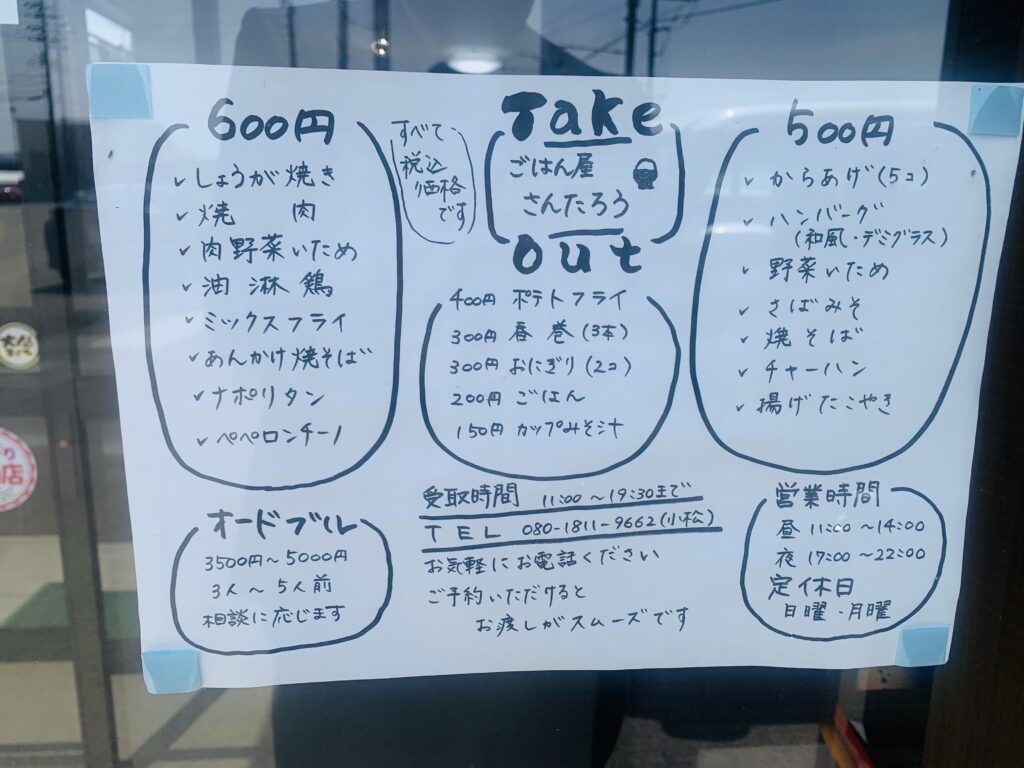 600円
しょうが焼き
焼 肉
肉野菜いため
油淋鶏
ミックスフライ
あんかけ焼そば
ナポリタン
ペペロンチーノ
すべて
税込
価格
です
Take
ごはん屋
さんたろう
out
400円 ポテトフライ
300円 春巻(3本)
300円 おにぎり(2コ)
200円 ごはん
150円 カップみそ汁
500円
からあげ(5コ)
ハンバーグ
(和風・デミグラス)
野菜いため
さばみそ
焼そば
チャーハン
揚げたこやき
オードブル
3500円〜5000円
3人〜5人前
相談に応じます
受取時間 11:00〜19:30まで
TEL 080-1811-9662(小松)
お気軽にお電話ください
ご予約いただけると
お渡しがスムーズです
営業時間
昼 11:00〜14:00
夜 17:00〜22:00
定休日
日曜・月曜
店